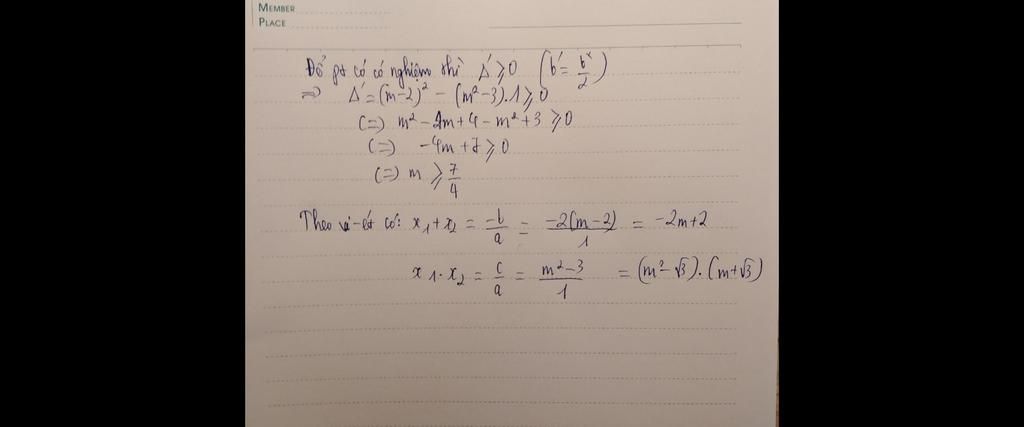 MEMBER
PLACE
Để pt có có nghiệm thì Δ' ⩾ 0 (b' = b/2)
=> Δ' = (m-2)² - (m²-3).1 ⩾ 0
(=) m² - 2m + 4 - m² + 3 ⩾ 0
(=) -4m + 7 ⩾ 0
(=) m ⩾ 7/4
Theo vi-ét có: x₁+x₂ = -b/a = -2(m-2)/1 = -2m+2
x₁.x₂ = c/a = m²-3/1 = (m²-√3).(m+√3)